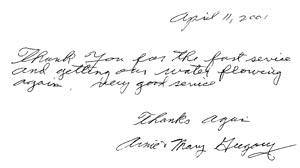 April 11, 2001
Thank You for the fast service
and getting our water flowing
again. Very good service
Thanks Again
Arnie & Mary Gregory